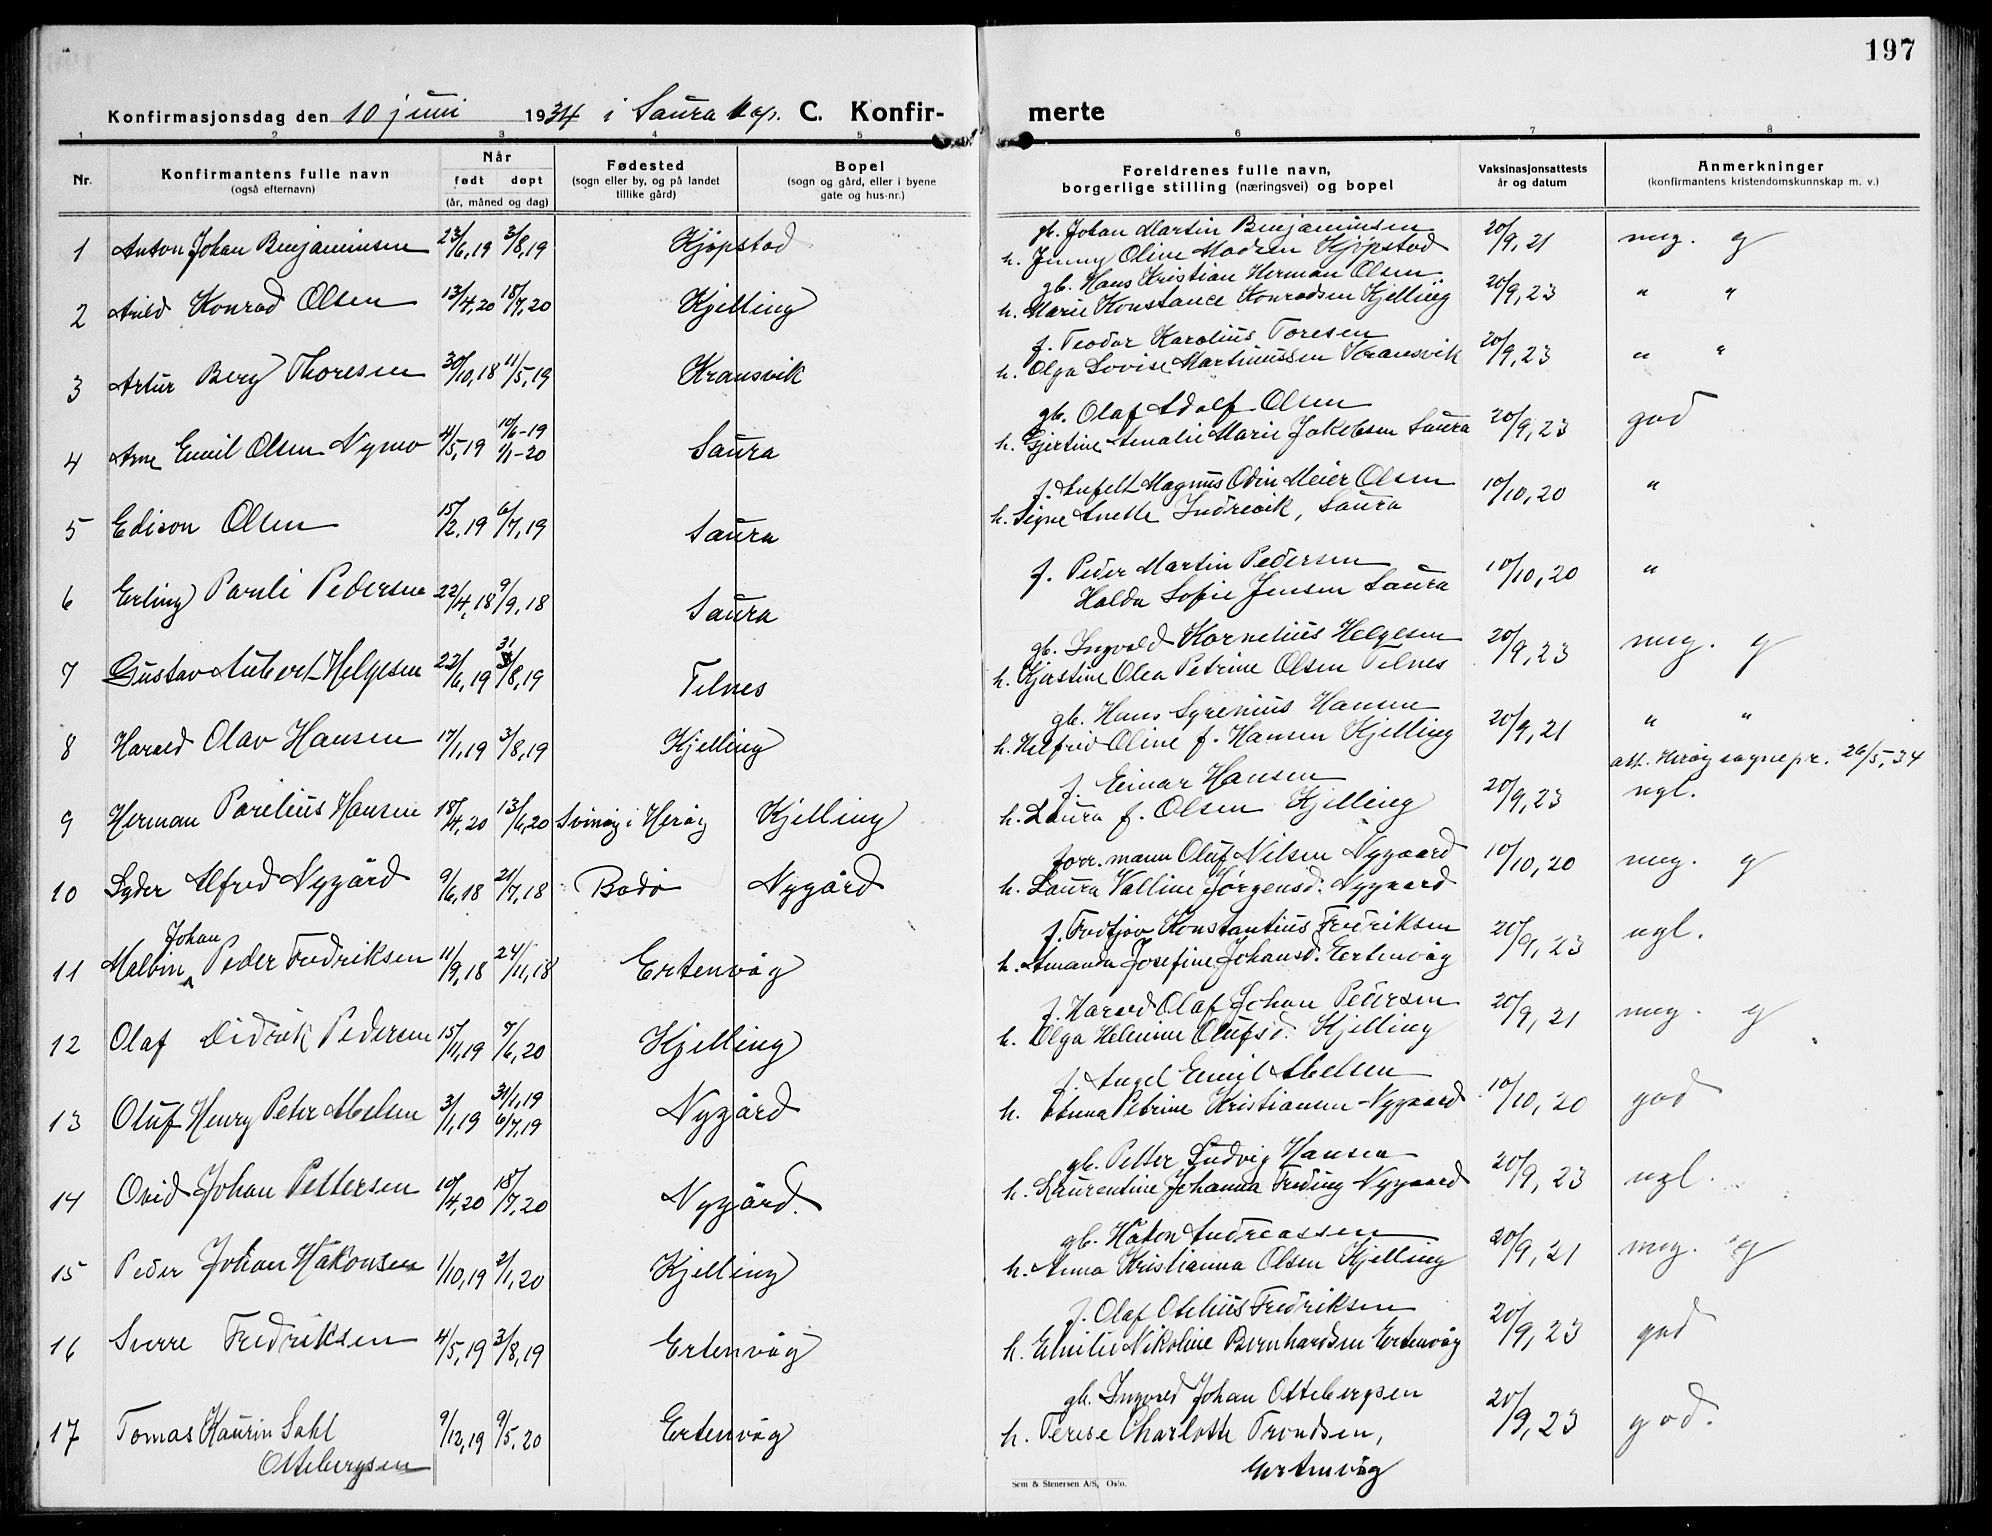 197
Konfirmasjonsdag den 10 juni 1934 i Saura kap. C. Konfir-
merte
1 2 3 4 5 6 7 8
Nr.
Konfirmantens fulle navn
(også efternavn)
Når
født døpt
(år, måned og dag)
Fødested
(sogn eller by, og på landet
tillike gård)
Bopel
(sogn og gård, eller i byene
gate og hus-nr.)
Foreldrenes fulle navn,
borgerlige stilling (næringsvei) og bopel
Vaksinasjonsattests
år og datum
Anmerkninger
(konfirmantens kristendomskunnskap m. v.)
1 Anton Johan Benjaminsen 23/6,19 3/8,19 Kjøpstad
gb. Johan Martin Benjaminsen
h. Jenny Oline Madsen Kjøpstad 20/9,21 meg. g
2 Arild Konrad Olsen 13/4,20 18/7,20 Kjelling
gb. Hans Kristian Herman Olsen
h. Marie Konstance Konradsen Kjelling 20/9,23 " "
3 Artur Berg Thoresen 30/10,18 11/5,19 Kransvik
f. Teodor Karolius Toresen
h. Olga Lovise Martinussen Kransvik 20/9,23 " "
4 Arne Emil Olsen Nymo 4/5,19 10/6-19
1/1-20 Saura
gb. Olaf Adolf Olsen
h. Gjertine Amalie Marie Jakobsen Saura 20/9,23 god
5 Edison Olsen 15/2,19 6/7,19 Saura
f. Magnus Odin Meier Olsen
h. Signe Anette Indrevik, Saura 10/10,20 "
6 Erling Pauli Pedersen 22/4,18 9/9,18 Saura
f. Peder Martin Pedersen
Halda Sofie Jensen Saura 10/10,20 "
7 Gustav Aubert Helgesen 22/6,19 31/8,19 Telnes
gb. Ingvald Kornelius Helgesen
h. Kjerstine Olea Petrine Olsen Telnes 20/9,23 meg. g
8 Harald Olav Hansen 17/1,19 3/8,19 Kjelling
gb. Hans Syrenius Hansen
h. Helfrid Oline f. Hansen Kjelling 20/9,21 " "
att. Herøy sognepr. 26/5,34
9 Herman Parelius Hansen 18/4,20 13/6,20 Svinøy i Herøy Kjelling
f. Einar Hansen
h. Laura f. Olsen Kjelling 20/9,23 ugl.
10 Lyder Alfred Nygård 9/6,18 21/7,18 Bodø Nygård
forr.mann Oluf Nilsen Nygaard
h. Laura Valline Jørgensd. Nygaard 10/10,20 meg. g
Johan
11 Malvin Peder Fredriksen 11/9,18 24/11,18 Ertenvåg
f. Fredtjov Konstantius Fredriksen
h. Amanda Josefine Johansd. Ertenvåg 20/9,23 ugl.
12 Olaf Didrik Pedersen 15/11,19 7/6,20 Kjelling
f. Harald Olaf Johan Pedersen
h. Olga Helmine Olufsd. Kjelling 20/9,21 meg. g
13 Oluf Henry Peter Abelsen 3/1,19 31/1,19
6/7,19 Nygård
f. Angel Emil Abelsen
h. Anna Petrine Kristiansen Nygaard 10/10,20 god
14 Ovid Johan Pettersen 10/4,20 18/7,20 Nygård.
gb. Petter Ludvig Hansen
h. Laurentine Johanna Freding Nygaard 20/9,23 ugl.
15 Peder Johan Håkonsen 1/10,19 2/1,20 Kjelling
gb. Håkon Andreassen
h. Anna Kristianna Olsen Kjelling 20/9,21 meg. g
16 Sverre Fredriksen 4/5,19 3/8,19 Ertenvåg
f. Olaf Otelius Fredriksen
h. Emilie Nikoline Bernhardsen Ertenvåg 20/9,23 god
17 Tomas Kaurin Sahl
Ottebergsen 9/12,19 9/5,20 Ertenvåg
gb. Ingvald Johan Ottebergsen
h. Terese Charlotte Trondsen,
Ertenvåg 20/9,23 god.
Sem & Stenersen A/S, Oslo.